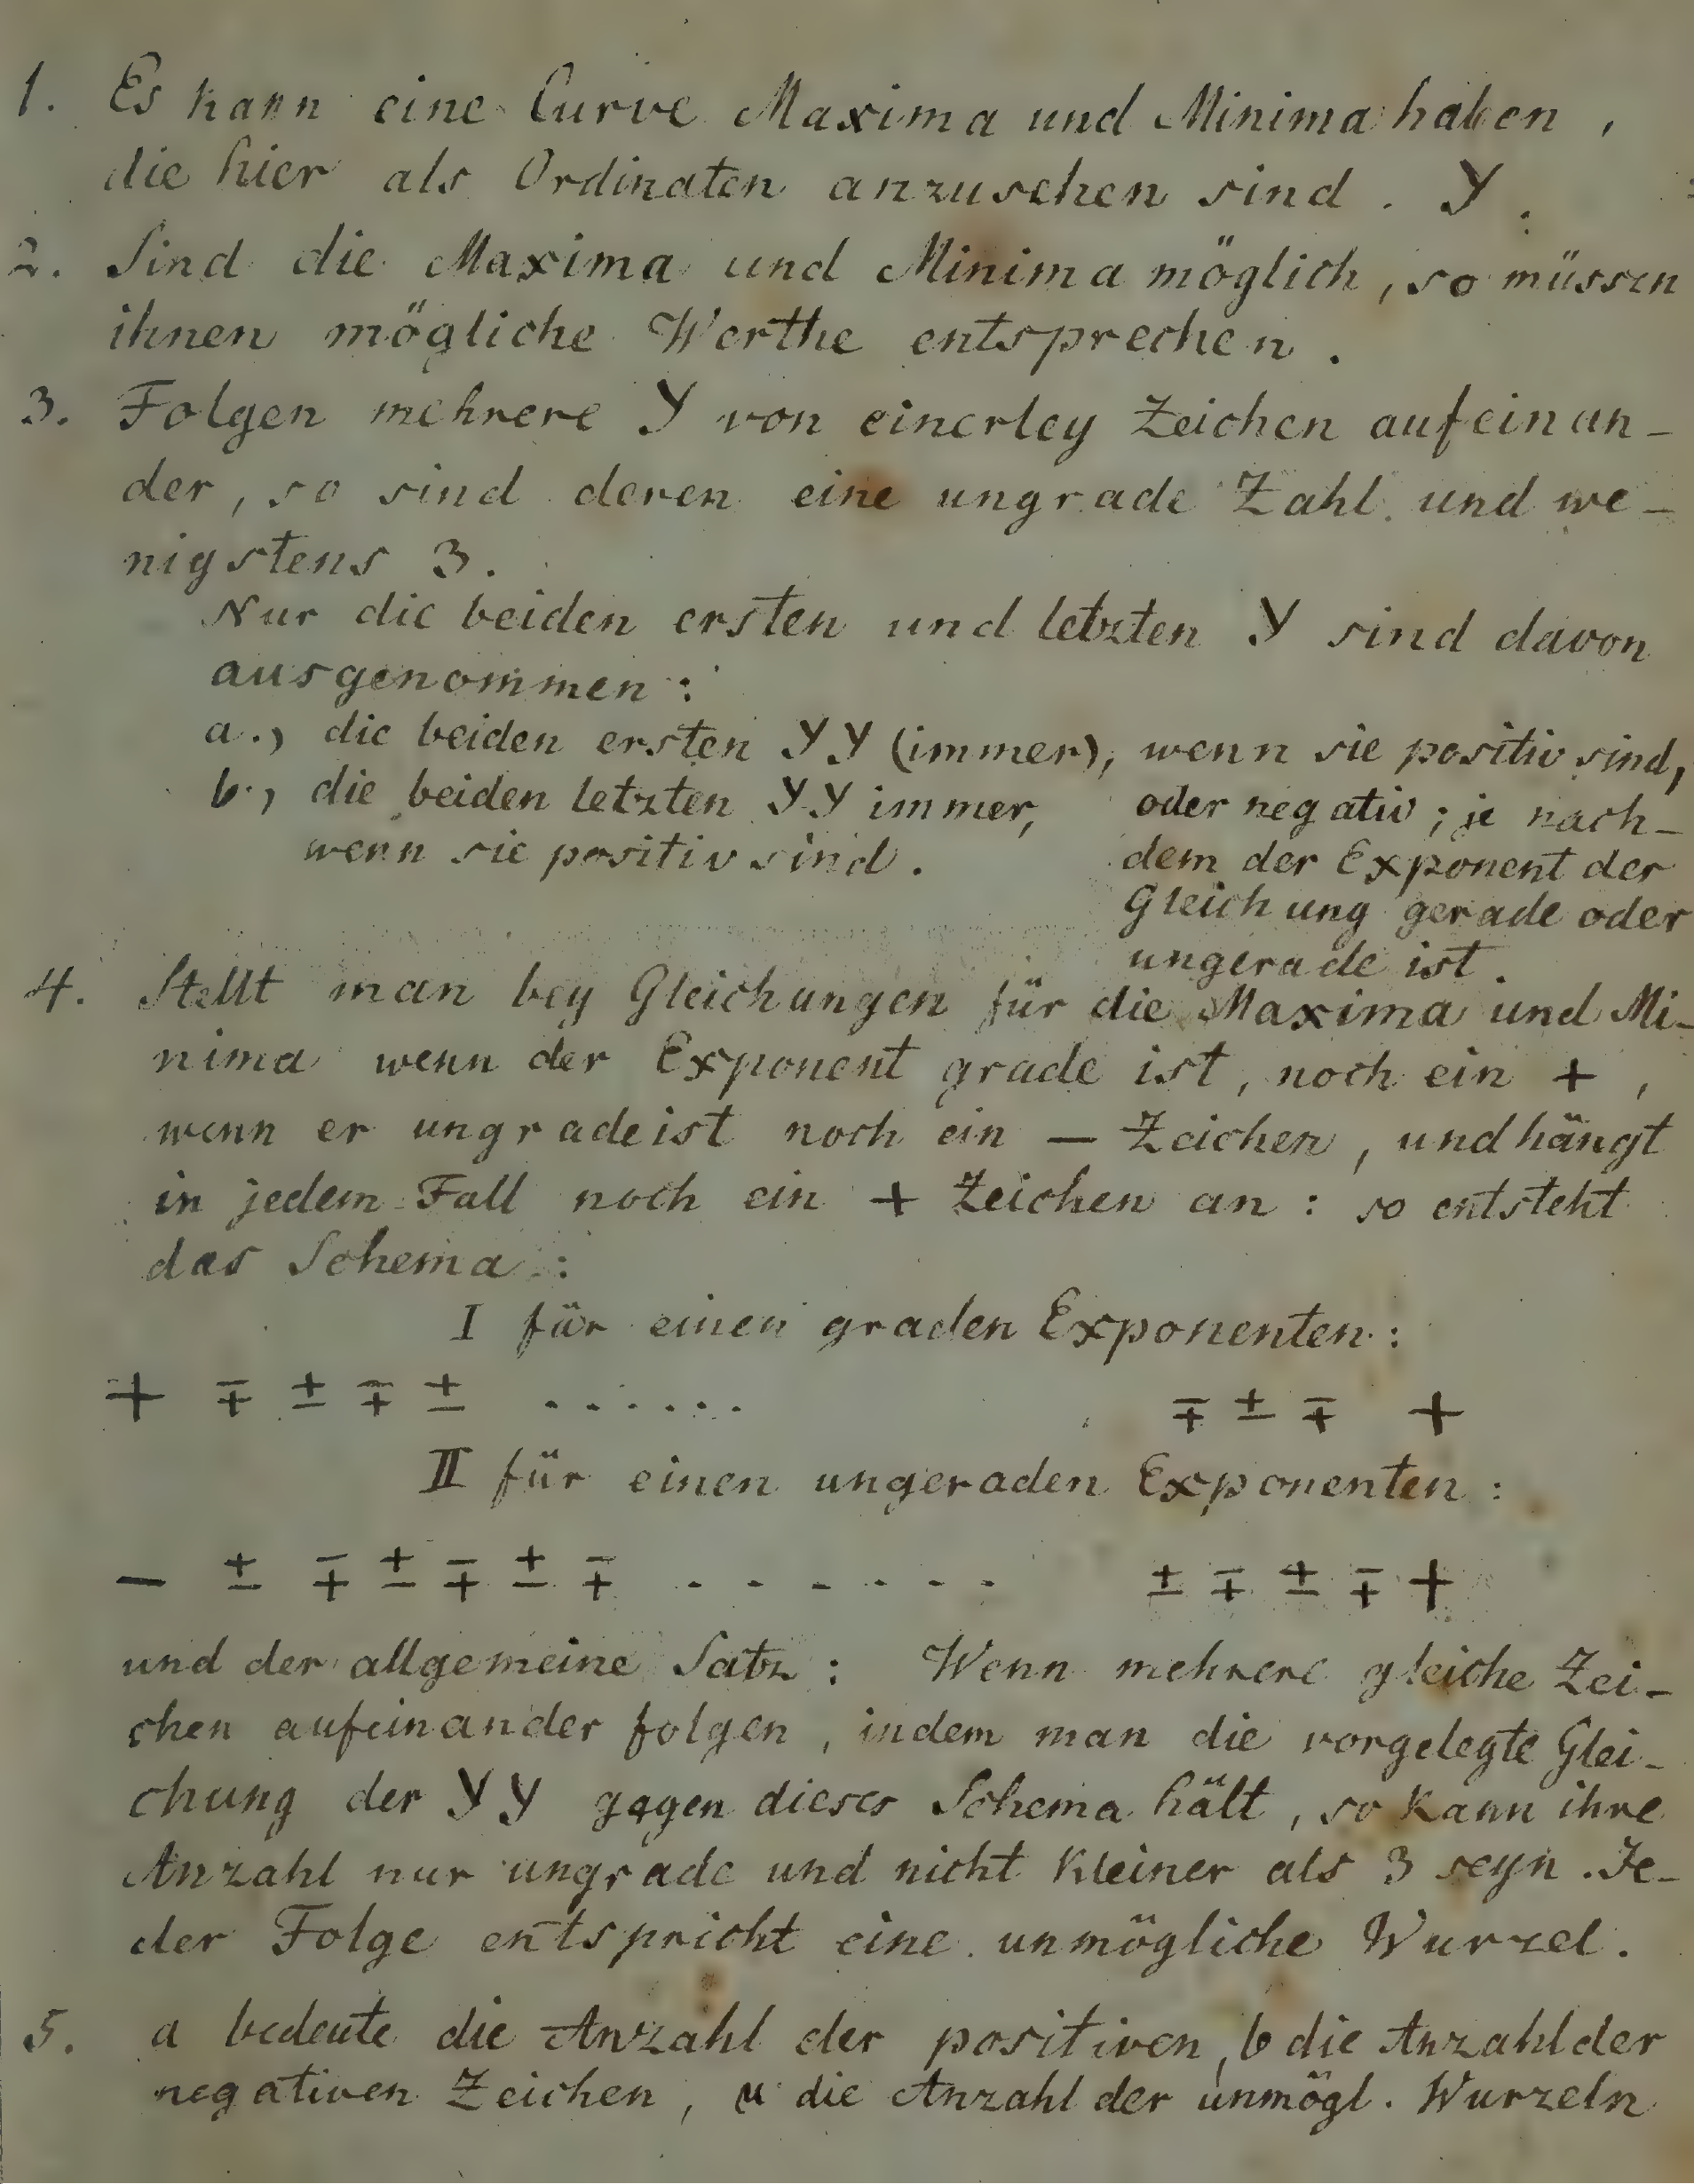 1. Es kann eine Curve Maxima und Minima haben,
die hier als Ordinaten anzusehen sind. Y.
2. Sind die Maxima und Minima möglich, so müssen
ihnen mögliche Werthe entsprechen.
3. Folgen mehrere Y von einerley Zeichen aufeinan-
der, so sind deren eine ungrade Zahl und we-
nigstens 3.
Nur die beiden ersten und letzten Y sind davon
ausgenommen:
a., die beiden ersten YY (immer), wenn sie positiv sind,
oder negativ; je nach-
dem der Exponent der
Gleichung gerade oder
ungerade ist.
b., die beiden letzten YY immer,
wenn sie positiv sind.
4. Stellt man bey Gleichungen für die Maxima und Mi-
nima wenn der Exponent grade ist, noch ein +,
wenn er ungrade ist noch ein — Zeichen, und hängt
in jedem Fall noch ein + Zeichen an: so entsteht
das Schema:
I für einen graden Exponenten:
+ ∓ ± ∓ ± ...... ∓ ± ∓ +
II für einen ungeraden Exponenten:
— ± ∓ ± ∓ ± ∓ ....... ± ∓ ± ∓ +
und der allgemeine Satz: Wenn mehrere gleiche Zei-
chen aufeinander folgen, indem man die vorgelegte Glei-
chung der YY gegen dieses Schema hält, so kann ihre
Anzahl nur ungrade und nicht kleiner als 3 seyn. Je-
der Folge entspricht eine unmögliche Wurzel.
5. a bedeute die Anzahl der positiven, b die Anzahl der
negativen Zeichen, u die Anzahl der unmögl. Wurzeln